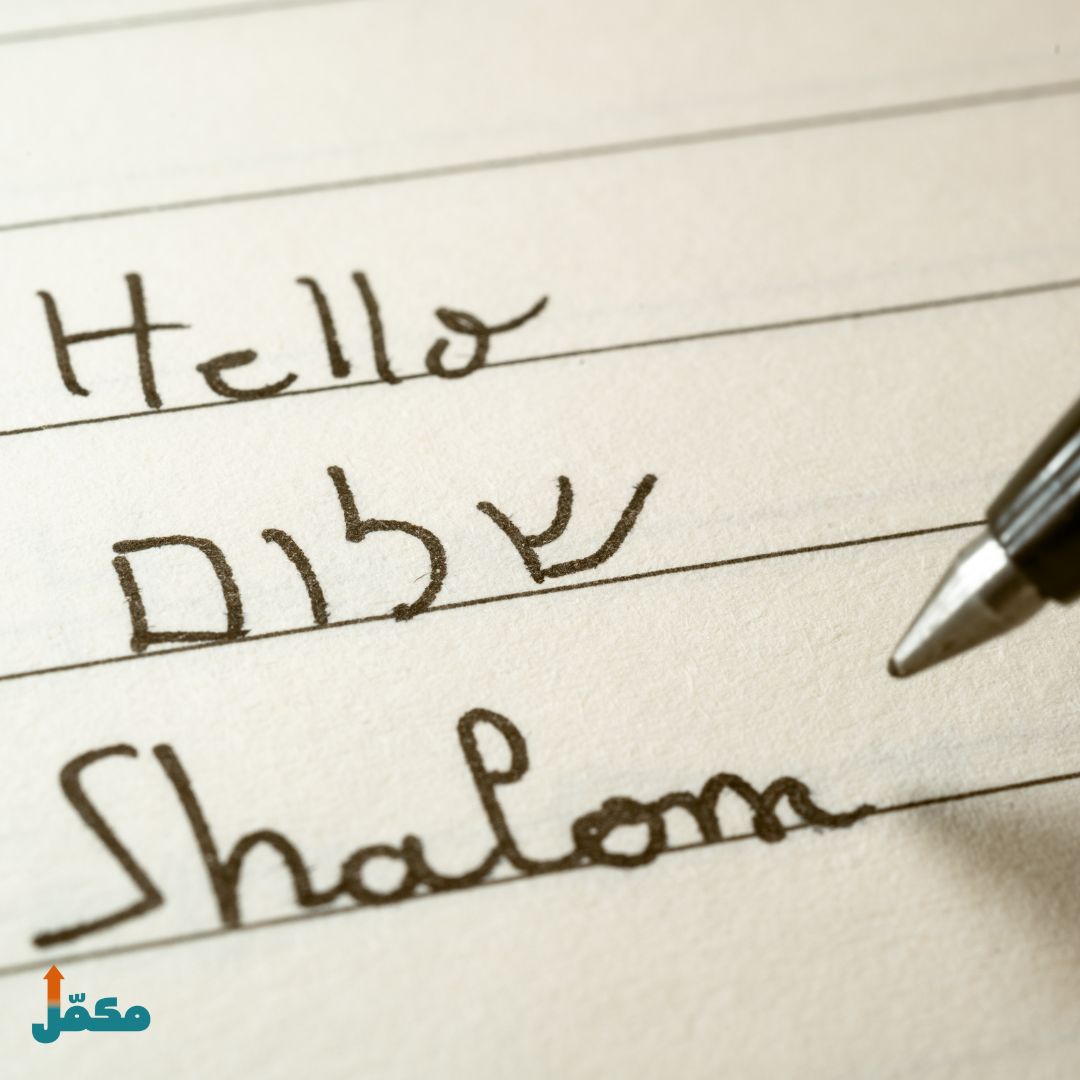 Hello
שלום
Shalom
مكمّل